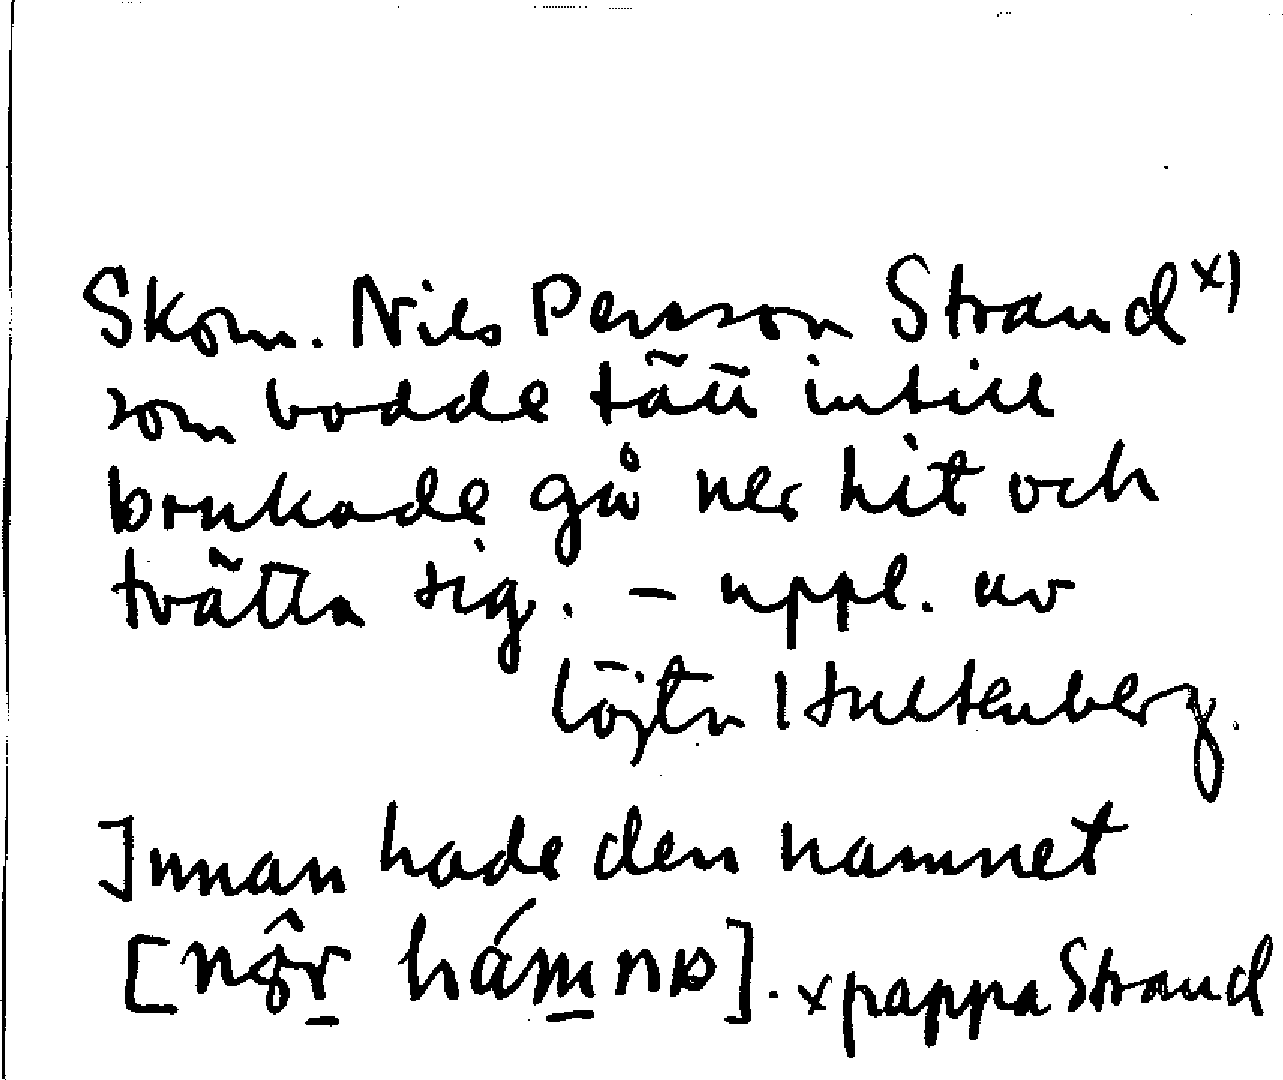 Skom. Nils Persson Strand x)
som bodde tätt intill
brukade gå ner hit och
tvätta sig. – uppl. av
löjtn Hultenberg.
Innan hade den namnet
x pappa Strand